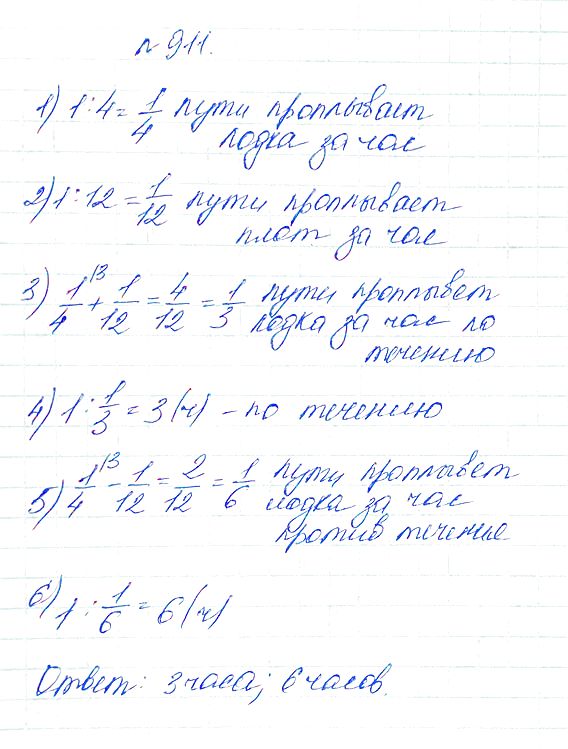 № 911.
1) 1:4 = 1/4 пути проплывает
лодка за час
2) 1:12 = 1/12 пути проплывает
плот за час
3) 1/4^\3 + 1/12 = 4/12 = 1/3 пути проплывет
лодка за час по
течению
4) 1 : 1/3 = 3 (ч) – по течению
5) 1/4^\3 - 1/12 = 2/12 = 1/6 пути проплывет
лодка за час
против течение
6) 1 : 1/6 = 6 (ч)
Ответ: 3 часа; 6 часов.